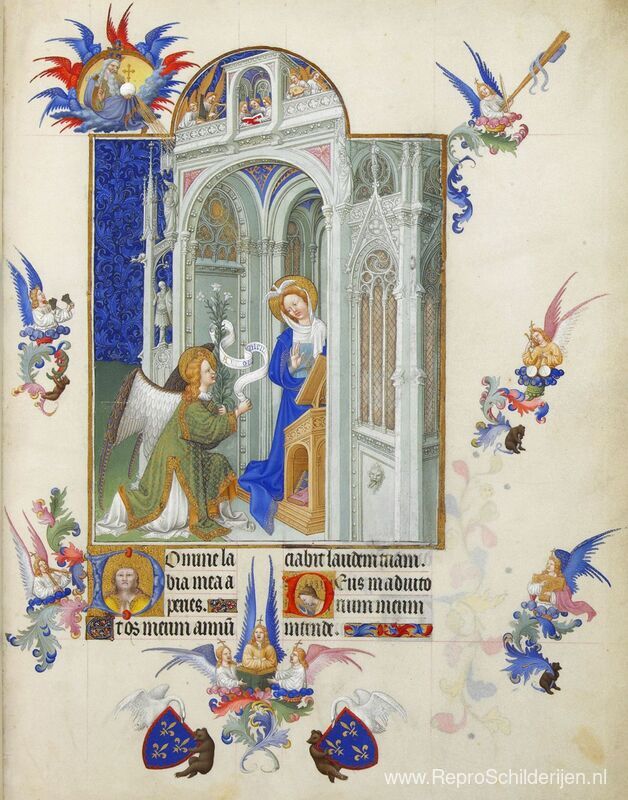 Domine la
bia mea a
peries.
Et os meum annū
ciabit laudem tuam.
Deus in adiuto
rium meum
intende.
www.ReproSchilderijen.nl